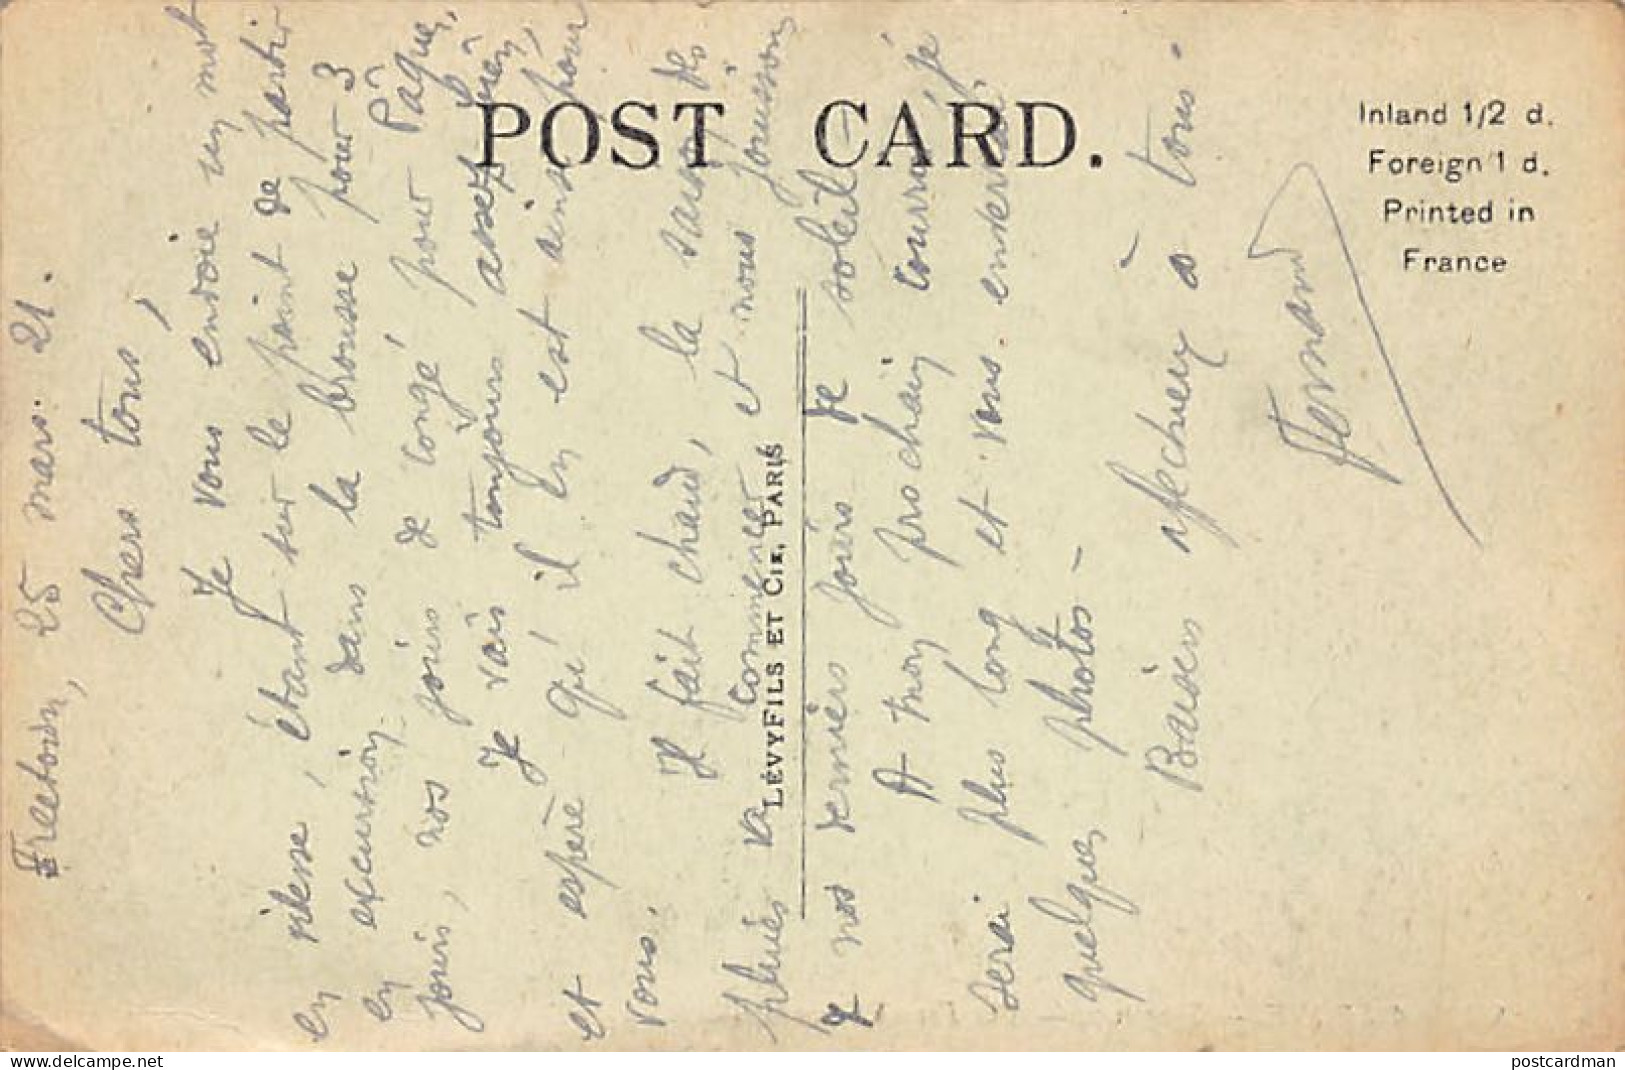 POST CARD.
Inland 1/2 d.
Foreign 1 d.
Printed in
France
LÉVY FILS ET CIE, PARIS
Freetown, 25 mars. 21.
Chers tous,
Je vous envoie un mot
en vitesse, étant sur le point de partir
en excursion dans la brousse pour 3
jours, nos jours de congé pour Pâques,
Je vais toujours assez bien,
et espère qu'il en est ainsi pour
vous.
Il fait chaud, la saison des
pluies va commencer et nous jouissons
de nos derniers jours de soleil -
A mon prochain courrier, je
serai plus long et vous enverrai
quelques photos -
Baisers afectueux à tous -
Fernand
delcampe.net
postcardman